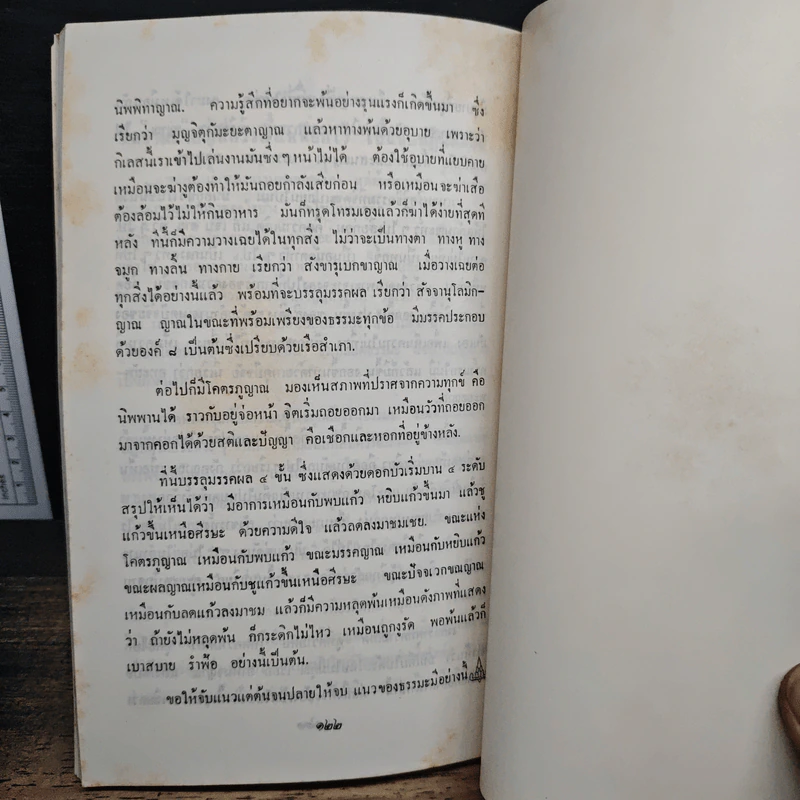 นิพพิทาญาณ. ความรู้สึกที่อยากจะพ้นอย่างรุนแรงก็เกิดขึ้นมา ซึ่ง
เรียกว่า มุญจิตุกัมะยะตาญาณ แล้วหาทางพ้นด้วยอุบาย เพราะว่า
กิเลสนี้เราเข้าไปเล่นงานมันซึ่ง ๆ หน้าไม่ได้ ต้องใช้อุบายที่แยบคาย
เหมือนจะฆ่างูต้องทำให้มันถอยกำลังเสียก่อน หรือเหมือนจะฆ่าเสือ
ต้องล้อมไว้ไม่ให้กินอาหาร มันก็ทรุดโทรมเองแล้วก็ฆ่าได้ง่ายที่สุดที
หลัง ทีนี้ก็มีความวางเฉยได้ในทุกสิ่ง ไม่ว่าจะเป็นทางตา ทางหู ทาง
จมูก ทางลิ้น ทางกาย เรียกว่า สังขารุเบกขาญาณ เมื่อวางเฉยต่อ
ทุกสิ่งได้อย่างนี้แล้ว พร้อมที่จะบรรลุมรรคผล เรียกว่า สัจจานุโลมิก-
ญาณ ญาณในขณะที่พร้อมเพรียงของธรรมะทุกข้อ มีมรรคประกอบ
ด้วยองค์ ๘ เป็นต้นซึ่งเปรียบด้วยเรือสำเภา.
ต่อไปก็มีโคตรภูญาณ มองเห็นสภาพที่ปราศจากความทุกข์ คือ
นิพพานได้ ราวกับอยู่จ่อหน้า จิตเริ่มถอยออกมา เหมือนวัวที่ถอยออก
มาจากคอกได้ด้วยสติและปัญญา คือเชือกและหอกที่อยู่ข้างหลัง.
ที่นี้บรรลุมรรคผล ๔ ขั้น ซึ่งแสดงด้วยดอกบัวเริ่มบาน ๔ ระดับ
สรุปให้เห็นได้ว่า มีอาการเหมือนกับพบแก้ว หยิบแก้วขึ้นมา แล้วชู
แก้วขึ้นเหนือศีรษะ ด้วยความดีใจ แล้วลดลงมาชมเชย. ขณะแห่ง
โคตรภูญาณ เหมือนกับพบแก้ว ขณะมรรคญาณ เหมือนกับหยิบแก้ว
ขณะผลญาณเหมือนกับชูแก้วขึ้นเหนือศีรษะ ขณะปัจจเวกขณญาณ
เหมือนกับลดแก้วลงมาชม แล้วก็มีความหลุดพ้นเหมือนดังภาพที่แสดง
ว่า ถ้ายังไม่หลุดพ้น ก็กระดิกไม่ไหว เหมือนถูกงูรัด พอพ้นแล้วก็
เบาสบาย รำฟ้อ อย่างนี้เป็นต้น.
ขอให้จับแนวแต่ต้นจนปลายให้จบ แนวของธรรมะมีอย่างนี้
๑๒๒